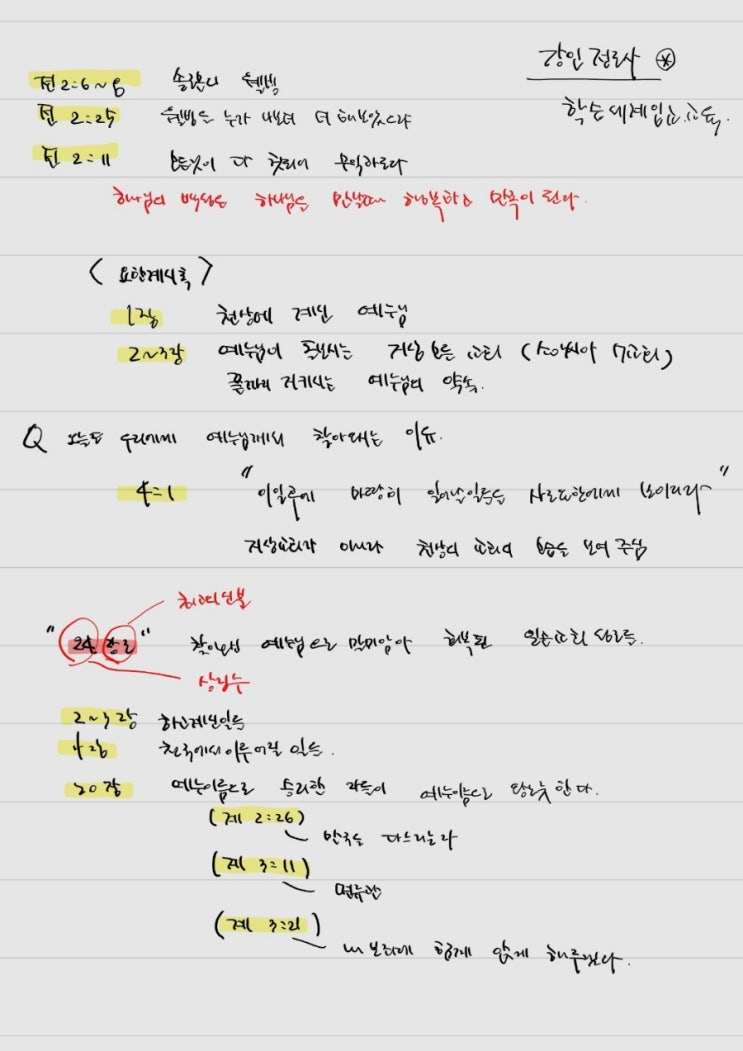 강인 전도사
전 2:6~8 솔로몬의 웰빙
전 2:25 웰빙을 누가 나보다 더 해보았으랴
전 2:11 모든것이 다 헛되어 무익하로다
하나님의 백성은 하나님을 만날때 행복하고 만족이 된다.
〈요한계시록〉
1장 천상에 계신 예수님
2~3장 예수님이 지상 모든 교회 (소아시아 7교회)
끝까지 지키시는 예수님의 약속.
Q 오늘도 우리에게 예수님께서 찾아오시는 이유.
4:1 "이일후에 마땅히 일어날일들을 사도요한에게 보이리라~"
지상교회가 아니라 천상의 교회의 모습을 보여 주심
최고의
"24 장로" 찾아오신 예수님으로 말미암아 회복된
상징수
2~3장 하고계신일들
4장 천국에서 이루어질 일들.
20장 예수이름으로 승리한 자들이 예수이름으로 한다.
(계 2:26)
만국을 다스리는자
(계 3:11)
면류관
(계 3:21)
내 보좌에 함께 앉게 해주겠다.